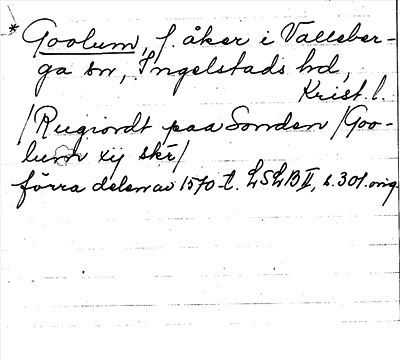 * Goolum, f. åker i Valleber-
ga sn, Ingelstads hd,
Krist. l.
/Rugiordt paa Sonden /Goo-
lum xij skr/
förra delen av 1570-t. LSLB II, s. 301. orig.